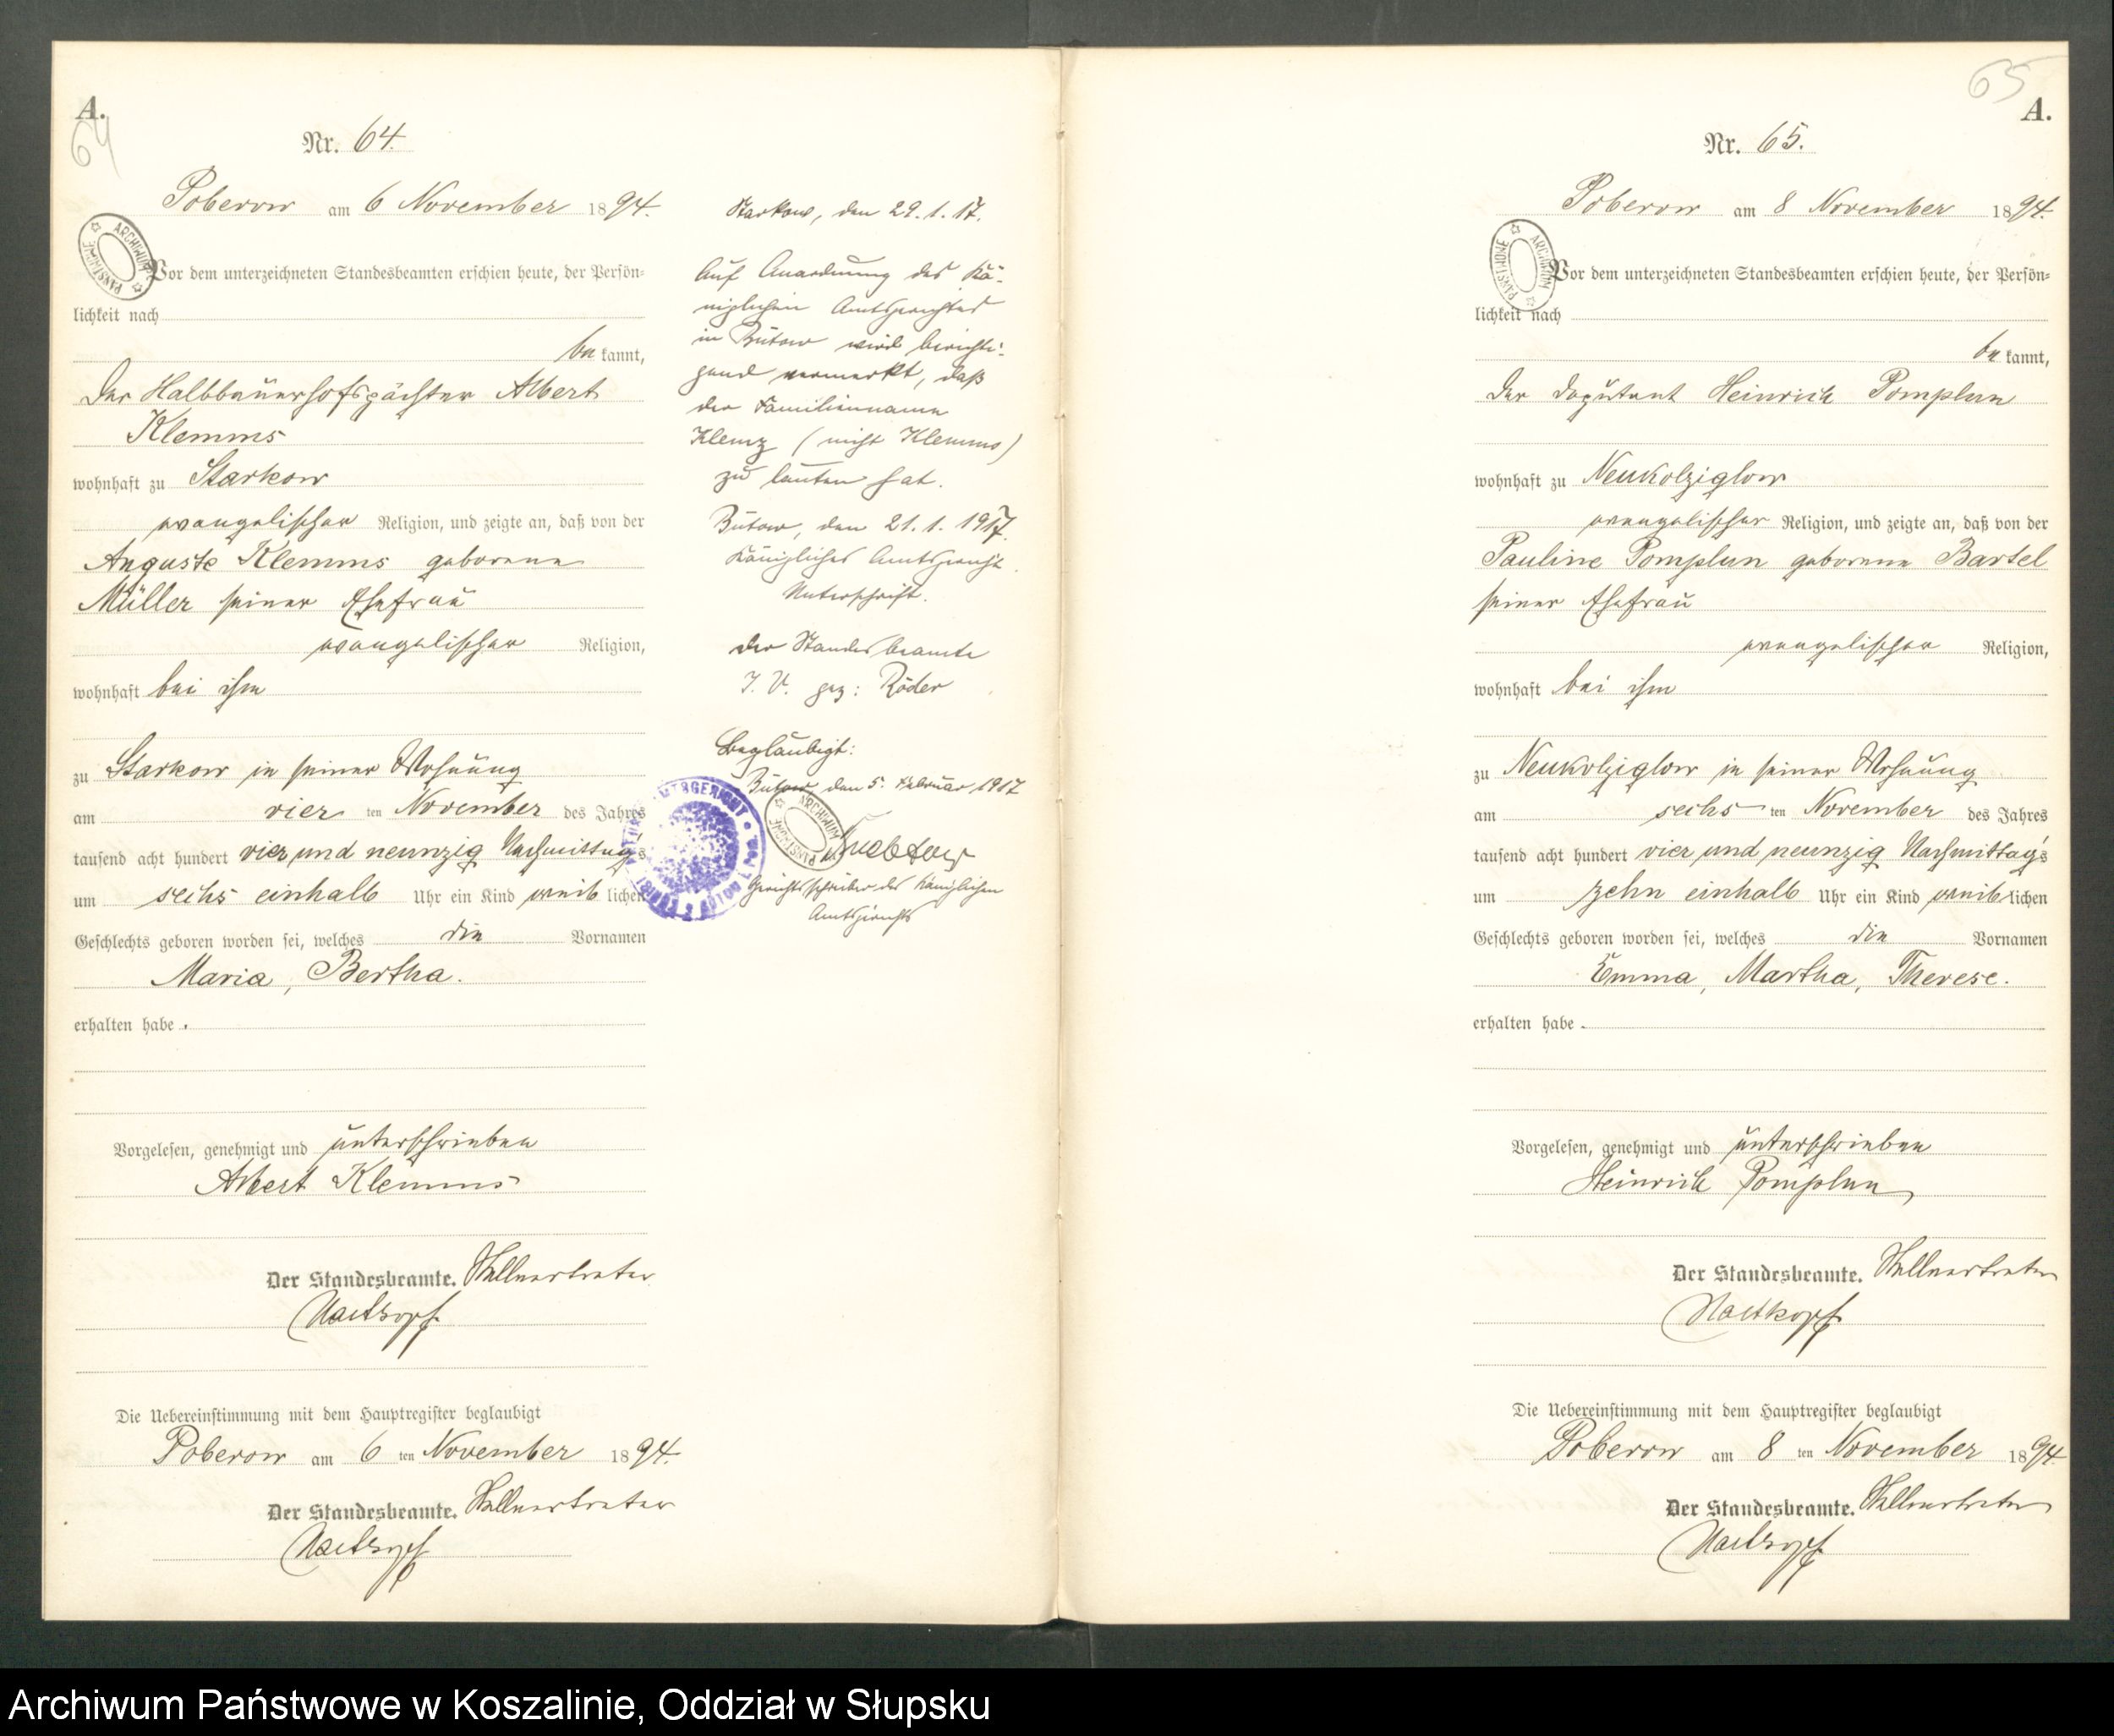 A.
64
Nr. 64.
Poberow am 6 November 1894.
Vor dem unterzeichneten Standesbeamten erschien heute, der Persön-
lichkeit nach
be kannt,
Der Halbbauerhofspächter Albert
Klemms
wohnhaft zu Starkow
evangelischer Religion, und zeigte an, daß von der
Auguste Klemms geborene
Müller seiner Ehefrau
evangelischer Religion,
wohnhaft bei ihm
zu Starkow in seiner Wohnung
am vier ten November des Jahres
tausend acht hundert vier und neunzig Nachmittags
um sechs einhalb Uhr ein Kind weib lichen
Geschlechts geboren worden sei, welches die Vornamen
Maria, Bertha.
erhalten habe.
Vorgelesen, genehmigt und unterschrieben
Albert Klemms
Der Standesbeamte. Stellvertreter
Die Uebereinstimmung mit dem Hauptregister beglaubigt
Poberow am 6 ten November 1894.
Der Standesbeamte. Stellvertreter
Starkow, den 29. 1. 17.
Auf Anordnung des Kö-
niglichen Amtsgerichtes
in Bütow wird berichti-
gend vermerkt, daß
der Familienname
Klemz (nicht Klemms)
zu lauten hat.
Bütow, den 21. 1. 1917.
Königliches Amtsgericht.
Unterschrift.
Der Standesbeamte
I. V. gez: Röder
Beglaubigt:
Bütow, den 5. Februar 1917
Gerichtsschreiber des Königlichen
Amtsgerichts
ARCHIWUM PAŃSTWOWE
ARCHIWUM PAŃSTWOWE
65
A.
Nr. 65.
Poberow am 8 November 1894.
Vor dem unterzeichneten Standesbeamten erschien heute, der Persön-
lichkeit nach
be kannt,
Der Deputant Heinrich Pomplun
wohnhaft zu Neukolziglow
evangelischer Religion, und zeigte an, daß von der
Pauline Pomplun geborene Bartel
seiner Ehefrau
evangelischer Religion,
wohnhaft bei ihm
zu Neukolziglow in seiner Wohnung
am sechs ten November des Jahres
tausend acht hundert vier und neunzig Nachmittags
um zehn einhalb Uhr ein Kind weib lichen
Geschlechts geboren worden sei, welches die Vornamen
Emma, Martha, Therese.
erhalten habe.
Vorgelesen, genehmigt und unterschrieben
Heinrich Pomplun
Der Standesbeamte. Stellvertreter
Die Uebereinstimmung mit dem Hauptregister beglaubigt
Poberow am 8 ten November 1894.
Der Standesbeamte. Stellvertreter
ARCHIWUM PAŃSTWOWE
Archiwum Państwowe w Koszalinie, Oddział w Słupsku